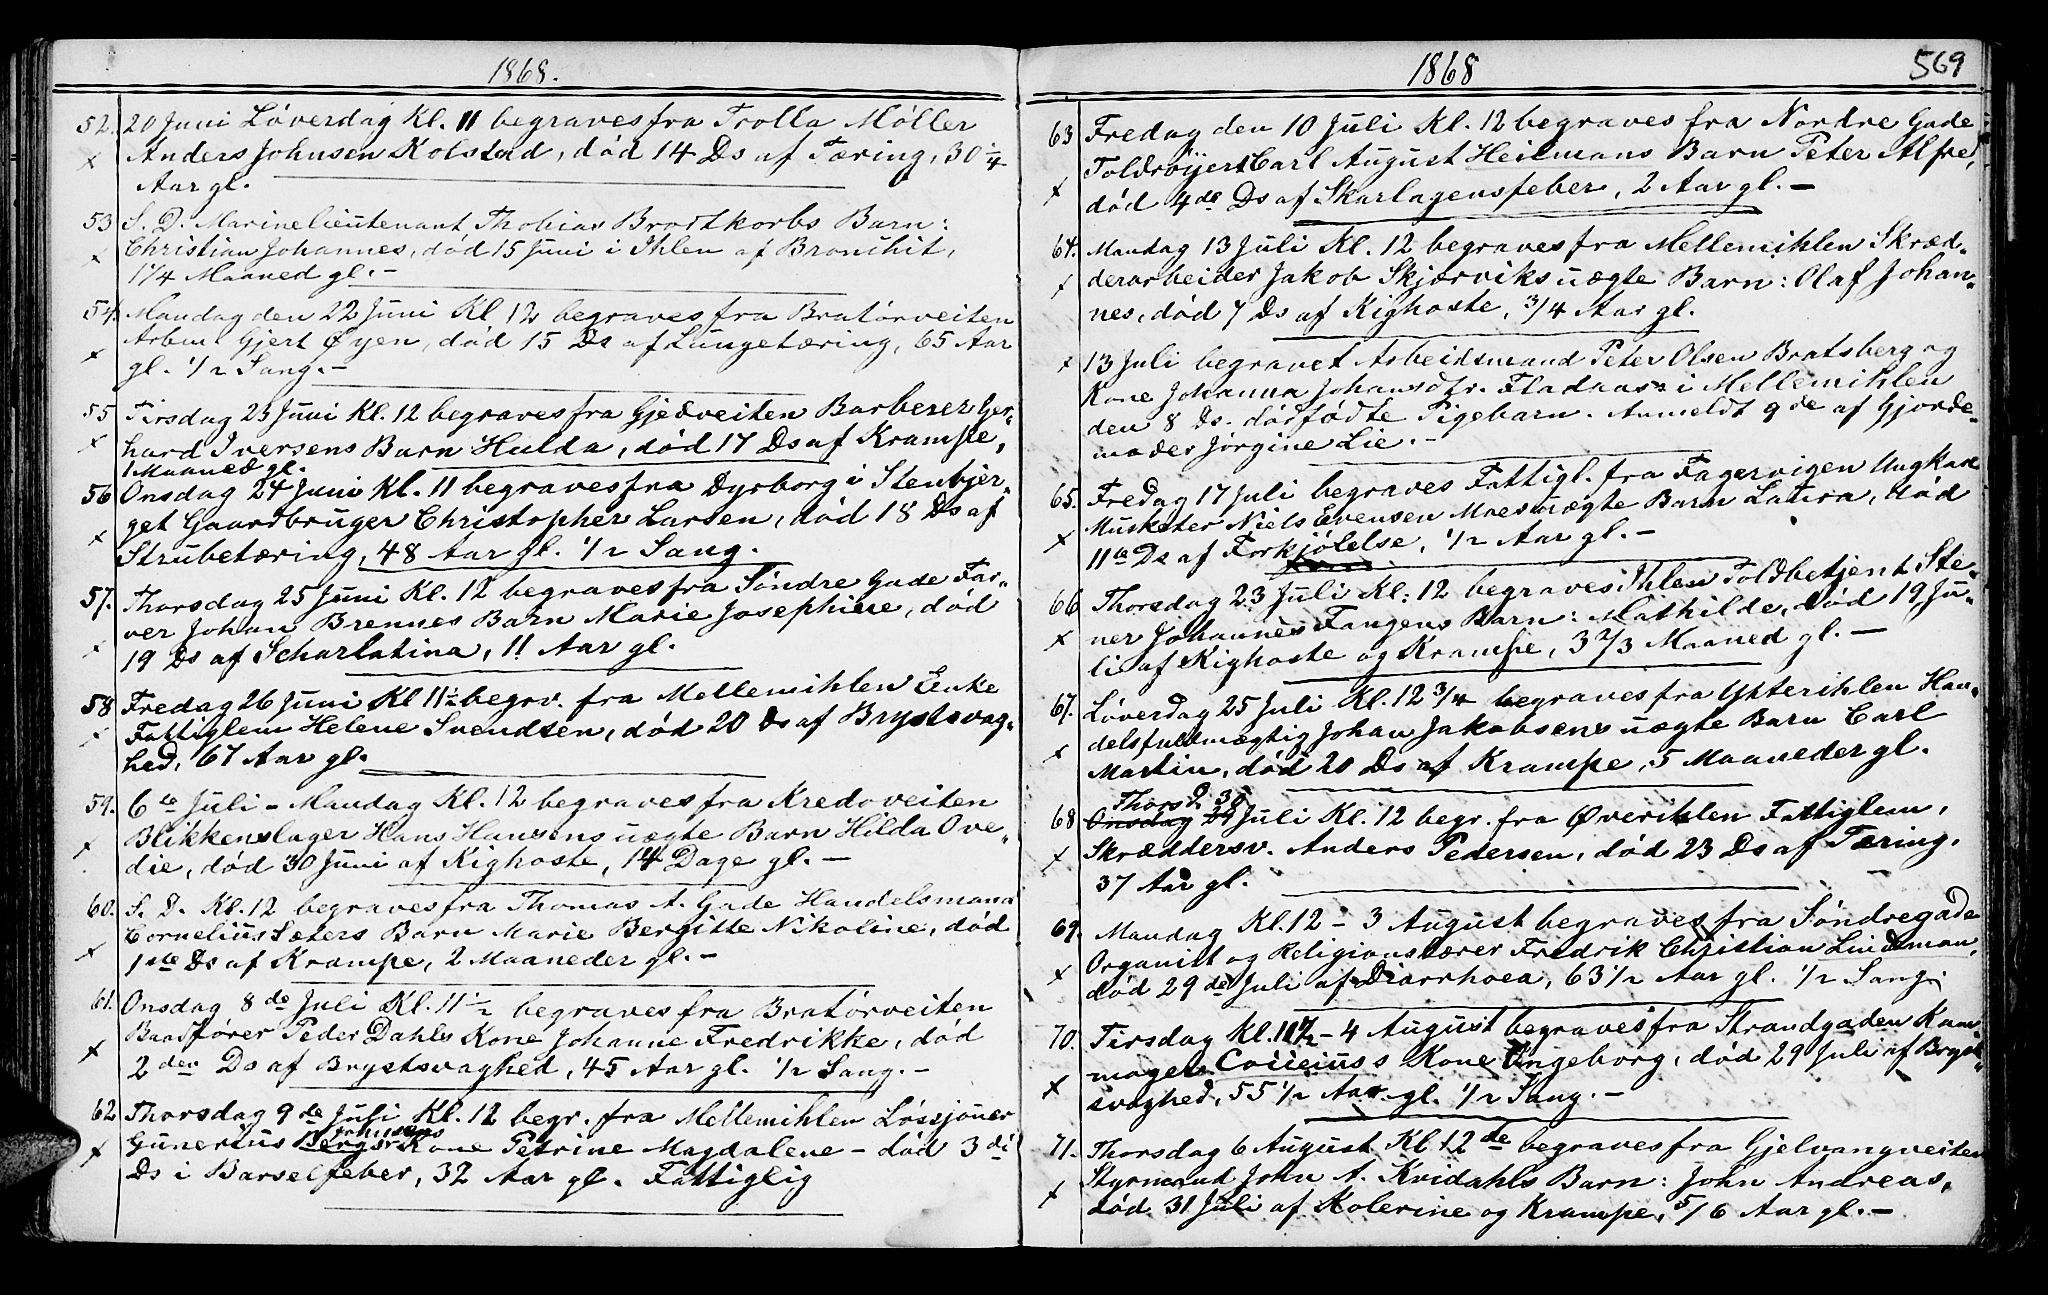 1868.
52. 20 Juni Løverdag Kl. 11 begraves fra Trolla Møller
x Anders Johnsen Kolstad, død 14 Ds af Tæring, 30 1/4
Aar gl.
53 S. D. Marinelieutenant Thobias Brodtkorbs Barn:
x Christian Johannes, død 15 Juni i Ihlen af Bronihit,
1 1/4 Maaned gl. –
54. Mandag den 22 Juni Kl 12 begraves fra Bratørveiten
x Arbm. Gjert Øyen, død 15 Ds af Lungetæring, 65 Aar
gl. 1/2 Sang. –
55 Tirsdag 23 Juni Kl. 12 begraves fra Gjedveiten Barberer Ger-
x hard Iversens Barn Hulda, død 17 Ds af Krampe,
1 Maaned gl.
56 Onsdag 24 Juni Kl. 11 begraves fra Dyrborg i Stenbjer-
get Gaardbruger Christopher Larsen, død 18 Ds af
x Strubetæring, 48 Aar gl. 1/2 Sang.
57. Thorsdag 25 Juni Kl. 12 begraves fra Søndre Gade Far-
ver Johan Brennes Barn Marie Josephine, død
x 19 Ds af Scharlatina, 11 Aar gl.
58 Fredag 26 Juni Kl 11 1/2 begrv. fra Mellemihlen Enke
x Fattiglem Helene Svendsen, død 20 Ds af Brystsvag-
hed, 67 Aar gl.
59. 6te Juli – Mandag Kl. 12 begraves fra Kredoveiten
x Blikkenslager Hans Hansens uægte Barn Hilda Ove-
die, død 30 Juni af Kighoste, 14 Dage gl. –
60. S. D. Kl. 12 begraves fra Thomas A. Gade Handelsmand
Cornelius Sæters Barn Marie Bergitte Nikoline, død
x 1ste Ds af Krampe, 2 Maaneder gl. –
61. Onsdag 8de Juli Kl. 11 1/2 begraves fra Bratørveiten
Baadfører Peder Dahls Kone Johanne Fredrikke, død
x 2den Ds af Brystsvaghed, 45 Aar gl. 1/2 Sang. –
62 Thorsdag 9de Juli Kl. 12 begr. fra Mellemihlen Løssjouer
Johnsens
x Gunerius Bergs Kone Petrine Magdalene – død 3di
Ds i Barselfeber, 32 Aar gl. Fattiglig
1868
569
63 Fredag den 10 Juli Kl. 12 begraves fra Nordre Gade
Toldrøyert Carl August Heilmans Barn Peter Alfred,
x død 4de Ds af Skarlagensfeber, 2 Aar gl. –
64. Mandag 13 Juli Kl. 12 begraves fra Mellemihlen Skræd-
x derarbeider Jakob Skjærviks uægte Barn: Olaf Johan-
nes, død 7 Ds af Kighoste, 3/4 Aar gl.
x 13 Juli begravet Arbeidsmand Peter Olsen Bratsberg og
Kone Johanna Johansdtr. Fladaas i Mellemihlen
den 8 Ds. dødfødte Pigebarn. Anmeldt 9de af Gjorde-
moder Jørgine Lie. –
65. Fredag 17 Juli begraves Fattigl. fra Fagervigen Ungkarl
Musketer Niels Evensen Moes uægte Barn Laura, død
x 11te Ds af Forkjølelse, 1/2 Aar gl. –
66 Thorsdag 23 Juli Kl: 12 begraves Ihlen Toldbetjent Ste-
x ner Johannes Fangens Barn: Mathilde, død 19 Ju-
li af Kighoste og Krampe, 3 2/3 Maaned gl. –
67. Løverdag 25 Juli Kl. 12 3/4 begraves fra Ytterihlen Han-
x delsfuldmægtig Johan Jakobsens uægte Barn Carl
Martin, død 20 Ds af Krampe, 5 Maaneder gl.
Thorsd. 30
68 Onsdag 29 Juli Kl. 12 begr. fra Øverihlen Fattiglem,
x Skræddersv. Anders Pedersen, død 23 Ds af Tæring,
37 Aar gl.
69. Mandag Kl. 12 – 3 August begraves fra Søndregade
x Organist og Religionslærer Fredrik Christian Lindeman,
død 29de Juli af Diarrhoea, 63 1/2 Aar gl. 1/2 Sang.
70. Tirsdag Kl. 11 1/2 – 4 August begraves fra Strandgaden Kam-
mager Kone Ingeborg, død 29 Juli af Bryst-
x svaghed, 55 1/2 Aar gl. 1/2 Sang. –
71. Thorsdag 6 August Kl 12 begraves fra Gjelvangveiten
x Styrmand John A. Kvidahls Barn: John Andreas,
død 31 Juli af Kolerine og Krampe, 5/6 Aar gl. –